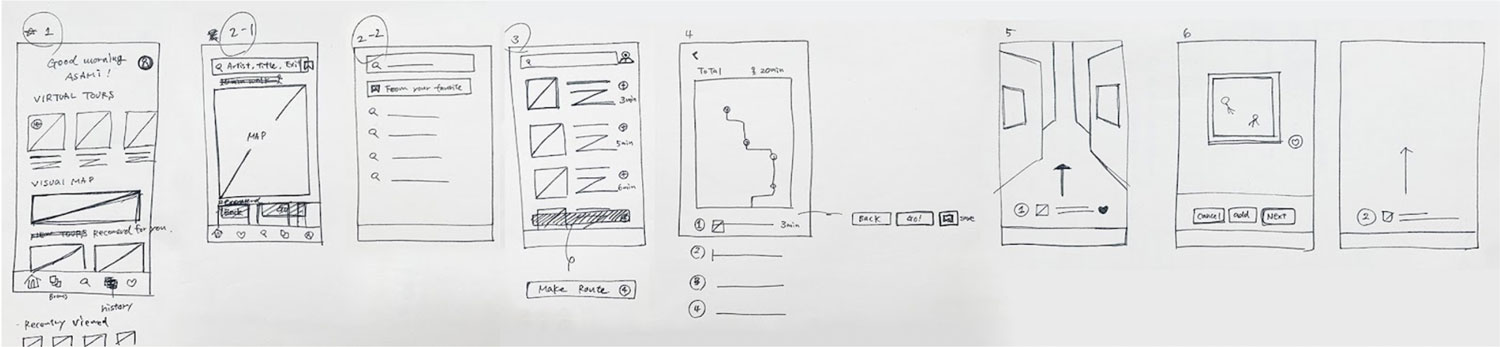 ☆ 1
Good morning
ASAMI!
VIRTUAL TOURS
VISUAL MAP
Recomend for you.
history
Recently viewed
2-1
Artist, Title, Exi
MAP
Back
2-2
From your favorite
3
3min
5min
6min
Make Route
4
TOTAL 20min
1 3min
2
3
4
Back GO! save
5
1
6
Cancel add NEXT
2